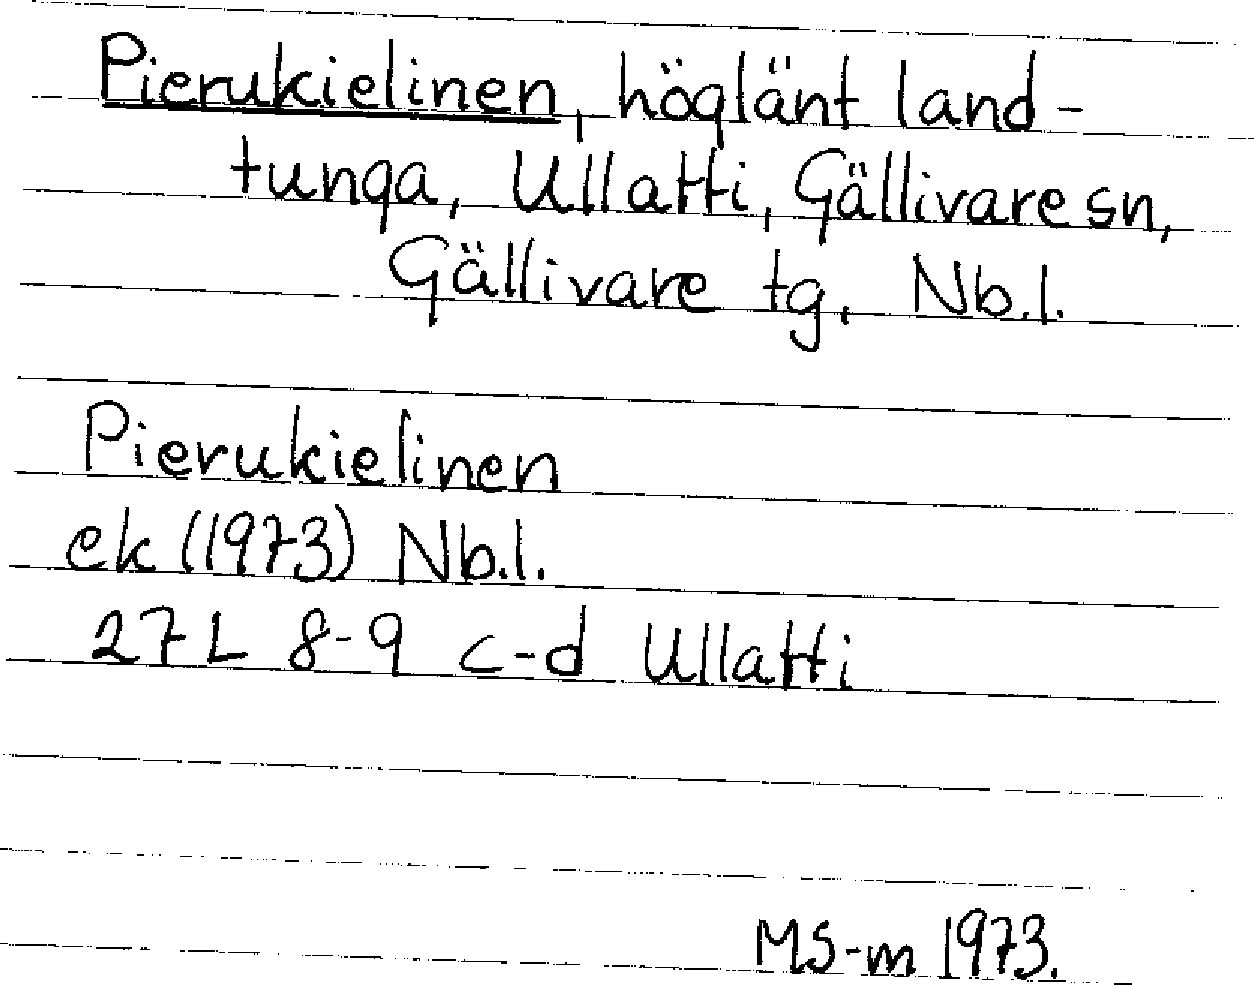 Pierukielinen, höglänt land-
tunga, Ullatti, Gällivare sn,
Gällivare tg, Nb.l.
Pierukielinen
ek (1973) Nb.l.
27L 8-9 c-d Ullatti
MS-m 1973.